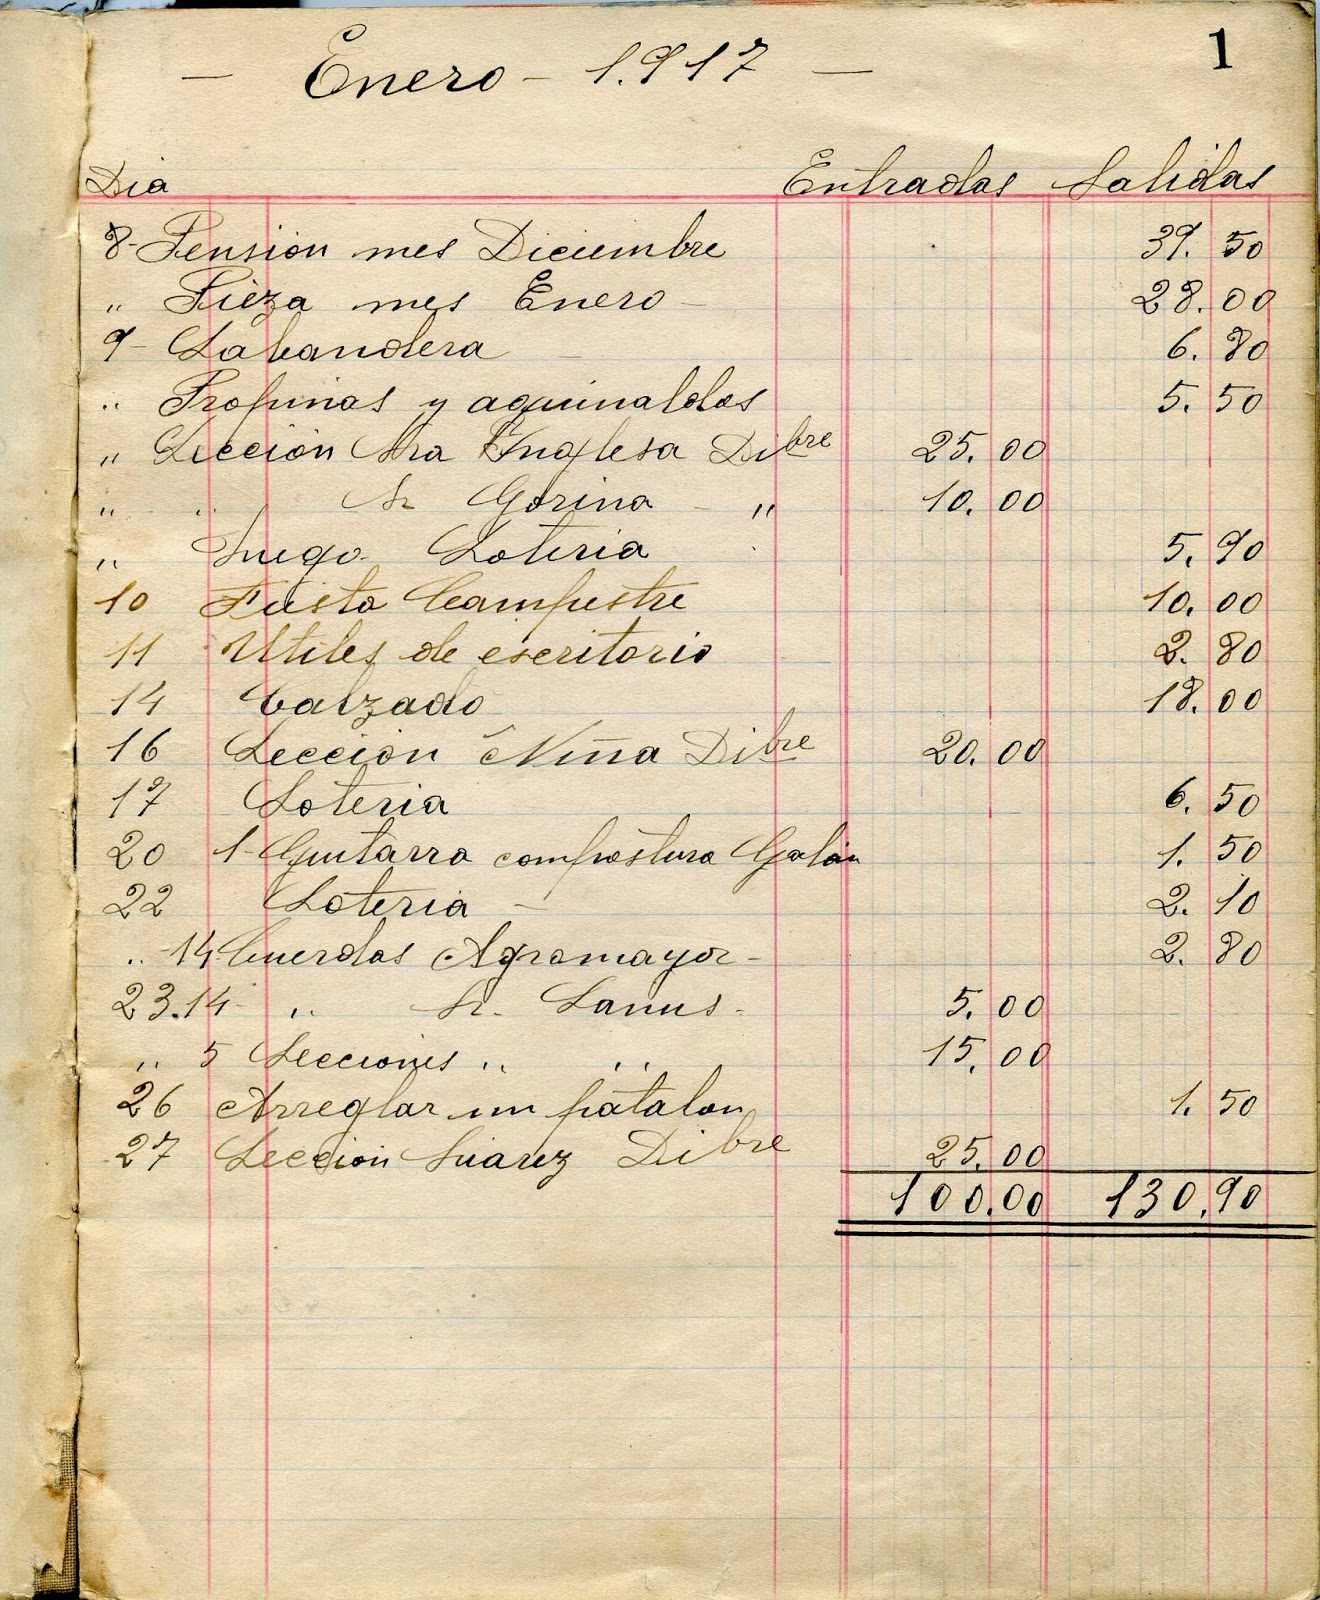 1
— Enero - 1.917 —
Dia Entradas Salidas
8- Pension mes Diciembre 39.50
" Pieza mes Enero - 28.00
9- Labandera 6.80
" Propinas y aguinaldos 5.50
" Lección Sra Inglesa Dibre 25.00
" " Sr Gorina " 10.00
" Juego Loteria 5.90
10 Fiesta Campestre 10.00
11 Utiles de escritorio 2.80
14 Calzado 18.00
16 Leccion Niña Dibre 20.00
17 Loteria 6.50
20 1- Guitarra compostura Galán 1.50
22 Loteria - 2.10
" 14 Cuerdas Agromayor - 2.80
23. 14 " Sr. Lanus - 5.00
" 5 Lecciones " " 15.00
26 Arreglar un patalon 1.50
27 Leccion Suarez Dibre 25.00
100.00 130.90